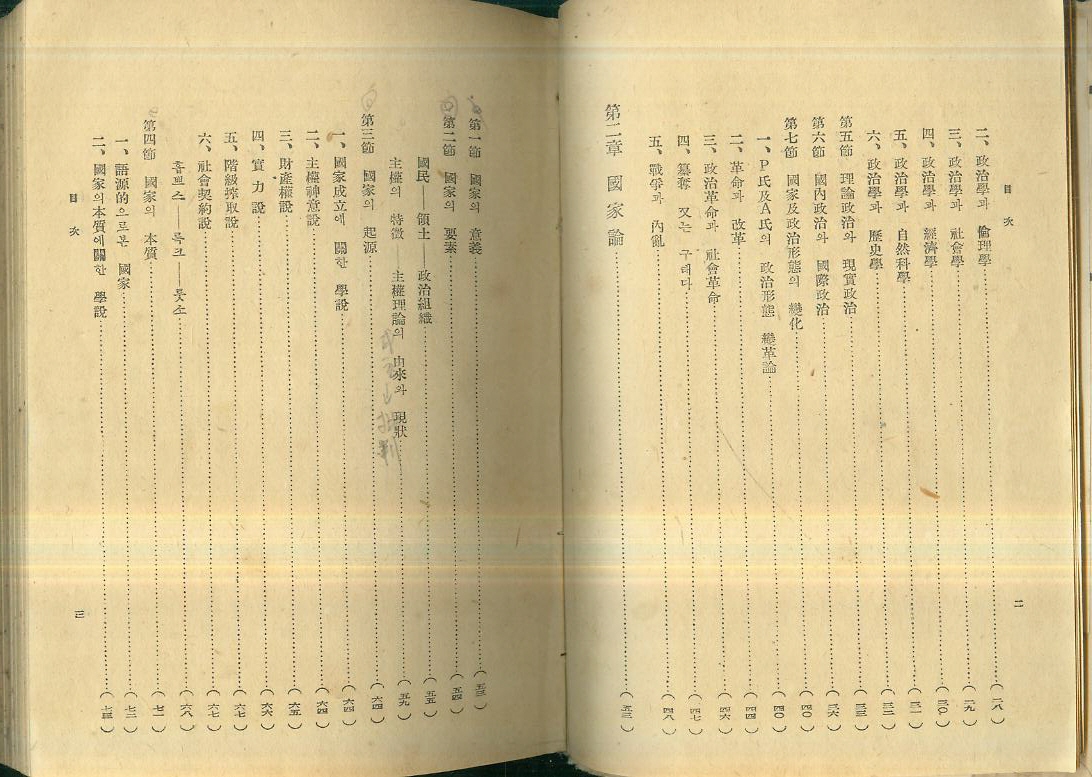 目次
二、政治學과 倫理學 (二八)
三、政治學과 社會學 (二九)
四、政治學과 經濟學 (三〇)
五、政治學과 自然科學 (三一)
六、政治學과 歷史學 (三二)
第五節 理論政治와 現實政治 (三三)
第六節 國內政治와 國際政治 (三六)
第七節 國家及政治形態의 變化 (四〇)
一、P氏及A氏의 政治形態 變革論 (四〇)
二、革命과 改革 (四四)
三、政治革命과 社會革命 (四六)
四、簒奪 又는 구데다 (四七)
五、戰爭과 內亂 (四八)
第二章 國家論 (五三)
二
目次
第一節 國家의 意義 (五三)
第二節 國家의 要素 (五四)
國民——領土——政治組織 (五五)
主權의 特徵——主權理論의 由來와 現狀 (五九)
第三節 國家의 起源 (六四)
一、國家成立에 關한 學說 (六四)
二、主權神意說 (六四)
三、財產權說 (六五)
四、實力說 (六六)
五、階級搾取說 (六七)
六、社會契約說 (六七)
홉쁘스——록크——룻소 (六八)
第四節 國家의 本質 (七一)
一、語源的으로본 國家 (七二)
二、國家의本質에關한 學說 (七三)
三